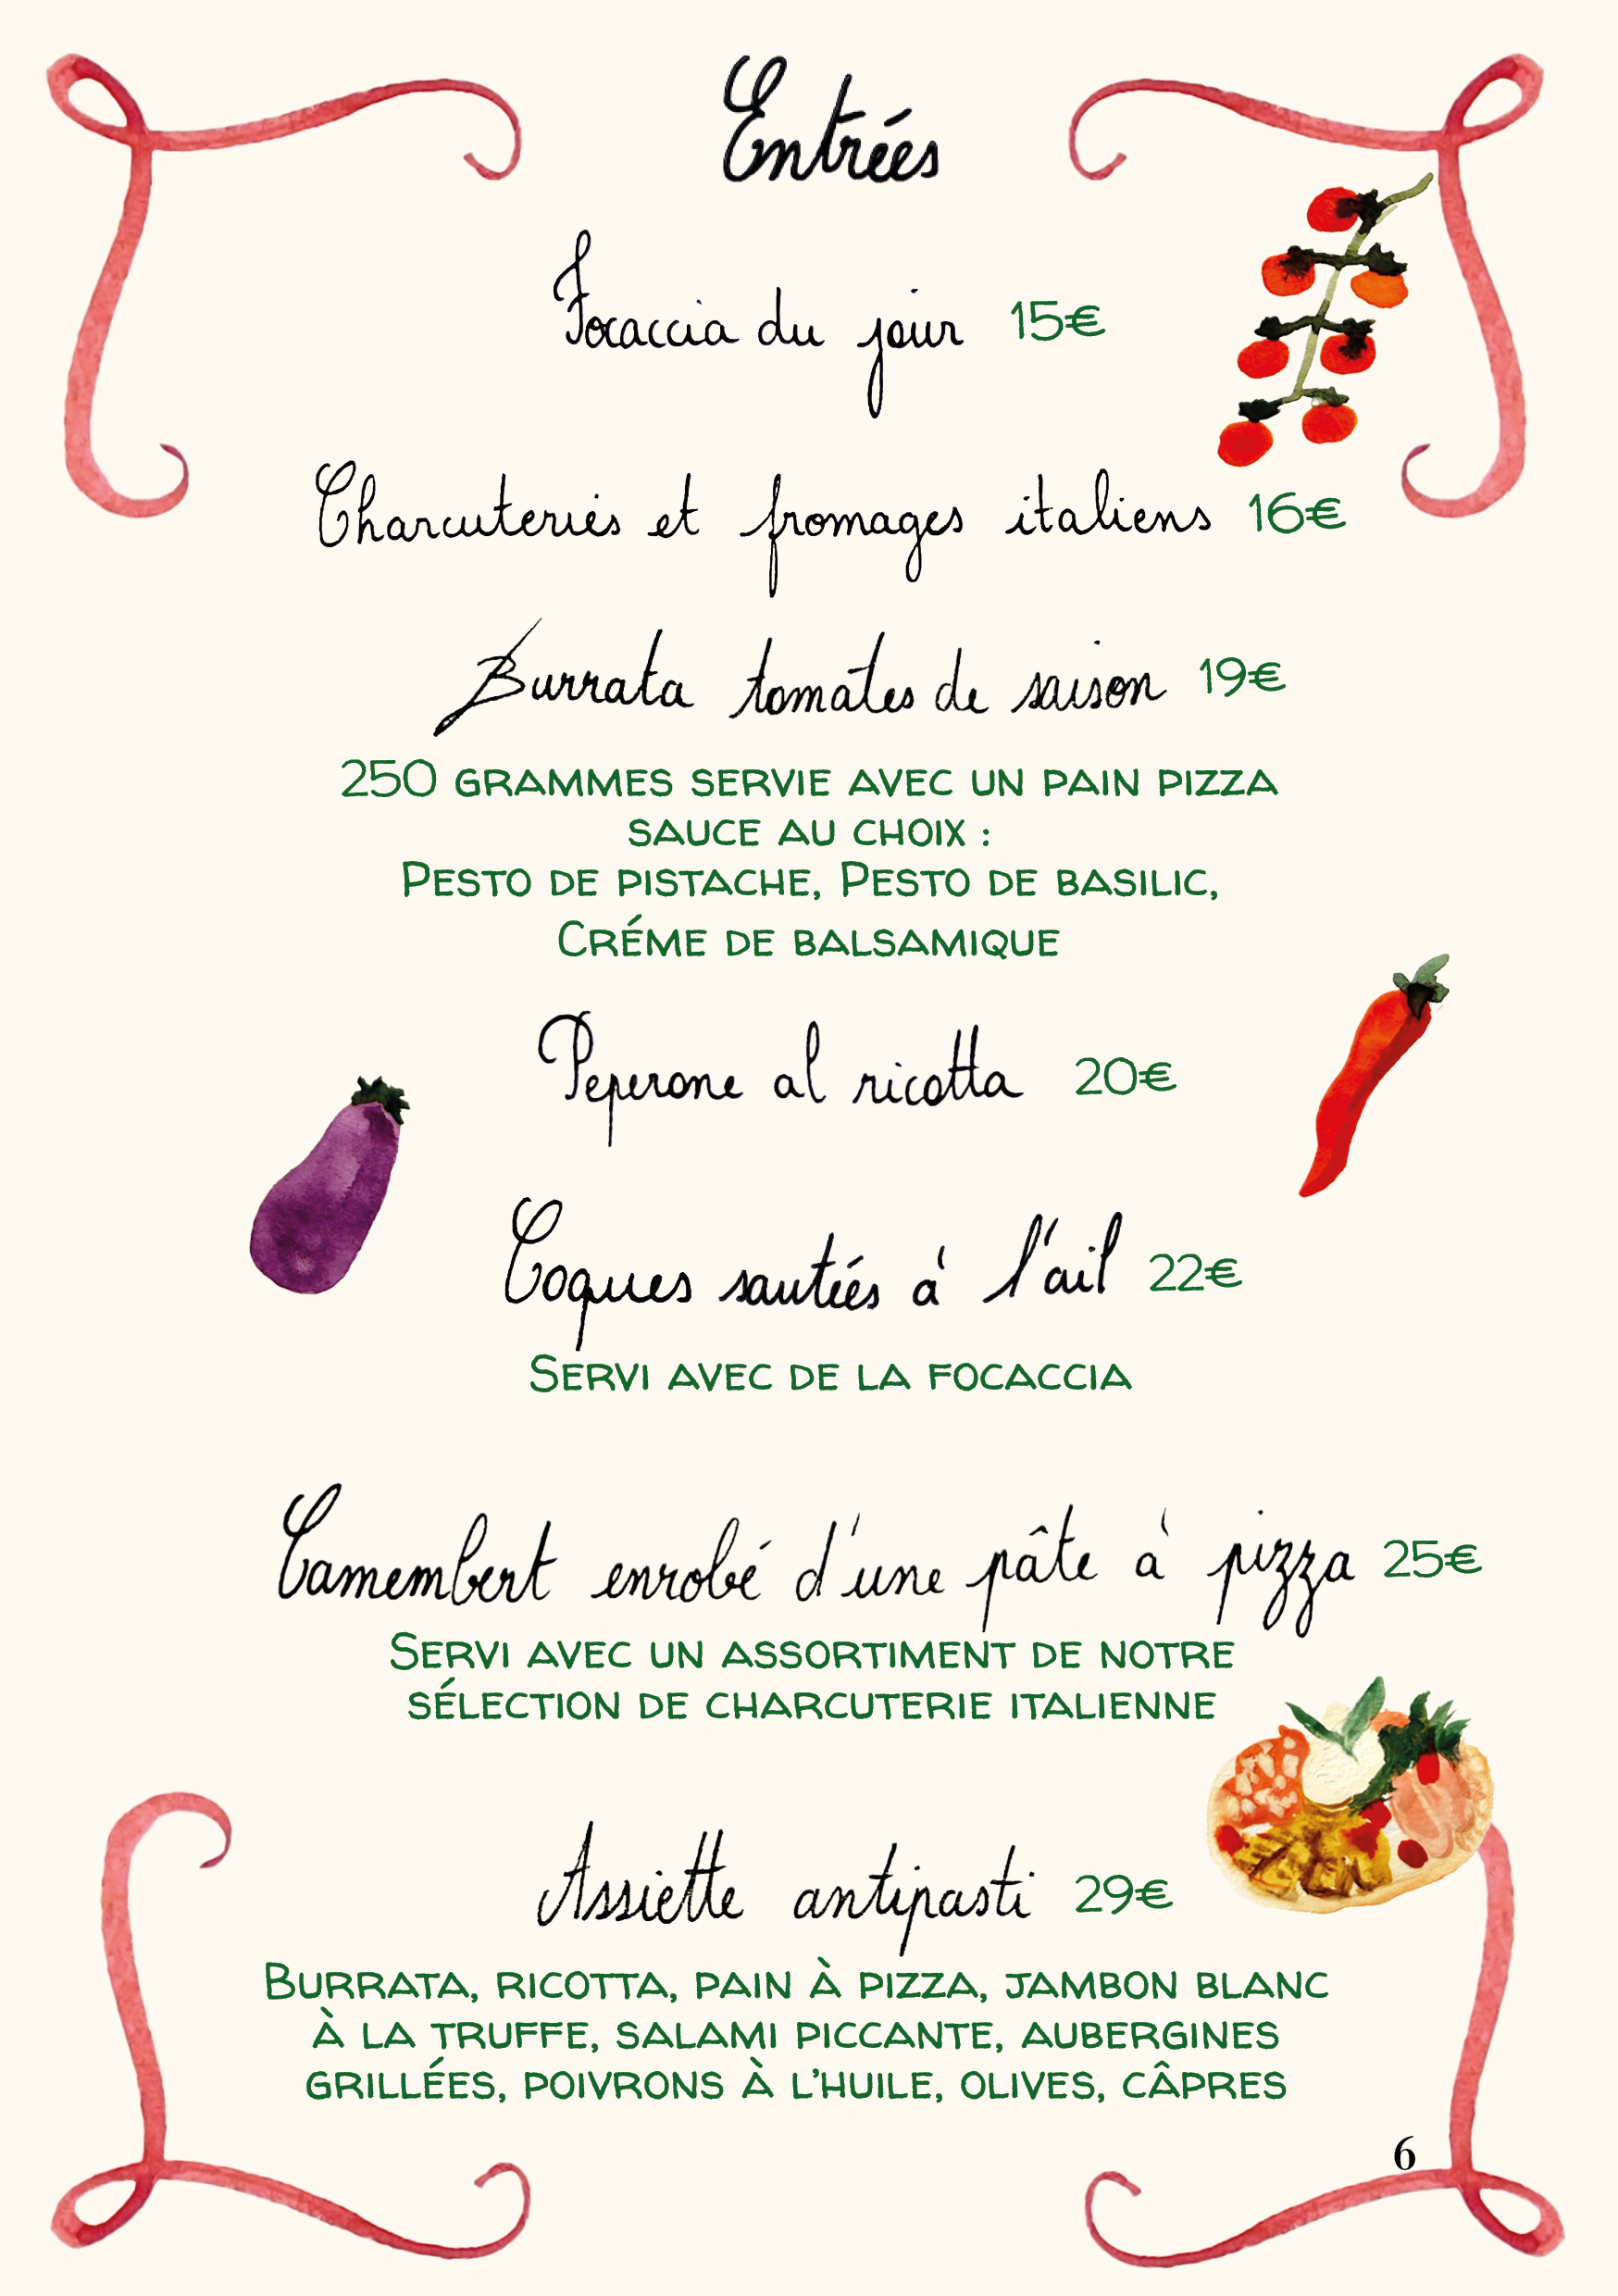 Entrées
Focaccia du jour 15€
Charcuteries et fromages italiens 16€
Burrata tomates de saison 19€
250 GRAMMES SERVIE AVEC UN PAIN PIZZA
SAUCE AU CHOIX :
PESTO DE PISTACHE, PESTO DE BASILIC,
CRÉME DE BALSAMIQUE
Peperone al ricotta 20€
Coques sautées à l'ail 22€
SERVI AVEC DE LA FOCACCIA
Camembert enrobé d'une pâte à pizza 25€
SERVI AVEC UN ASSORTIMENT DE NOTRE
SÉLECTION DE CHARCUTERIE ITALIENNE
Assiette antipasti 29€
BURRATA, RICOTTA, PAIN À PIZZA, JAMBON BLANC
À LA TRUFFE, SALAMI PICCANTE, AUBERGINES
GRILLÉES, POIVRONS À L'HUILE, OLIVES, CÂPRES
6